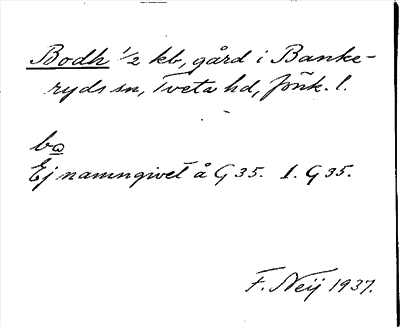 Bodh 1/2 kb, gård i Banke-
ryds sn, Tveta hd, Jönk. l.
bo
Ej namngivet å G 35. I. G 35.
F. Neij 1937.